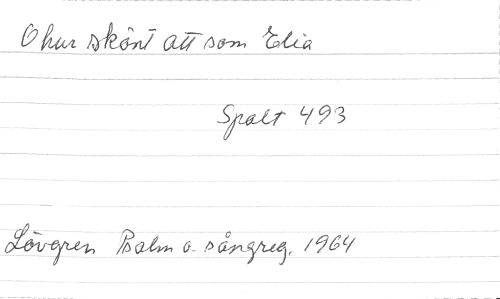 O hur skönt att som Elia
Spalt 493
Lövgren Psalm o. sångreg. 1964